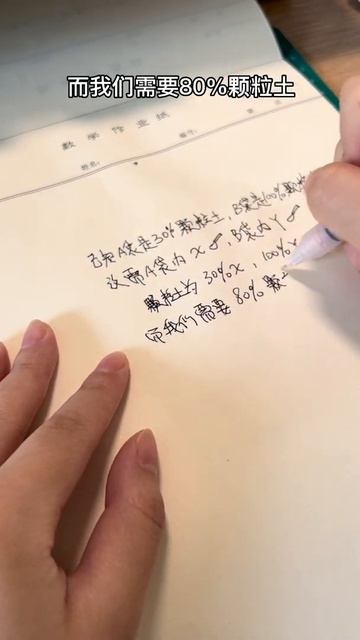 而我们需要80%颗粒土
数学作业纸
已知A袋是30%颗粒土,B袋是100%颗粒
设需A袋为x,B袋为Y
颗粒土为30%x,100%
而我们需要80%颗